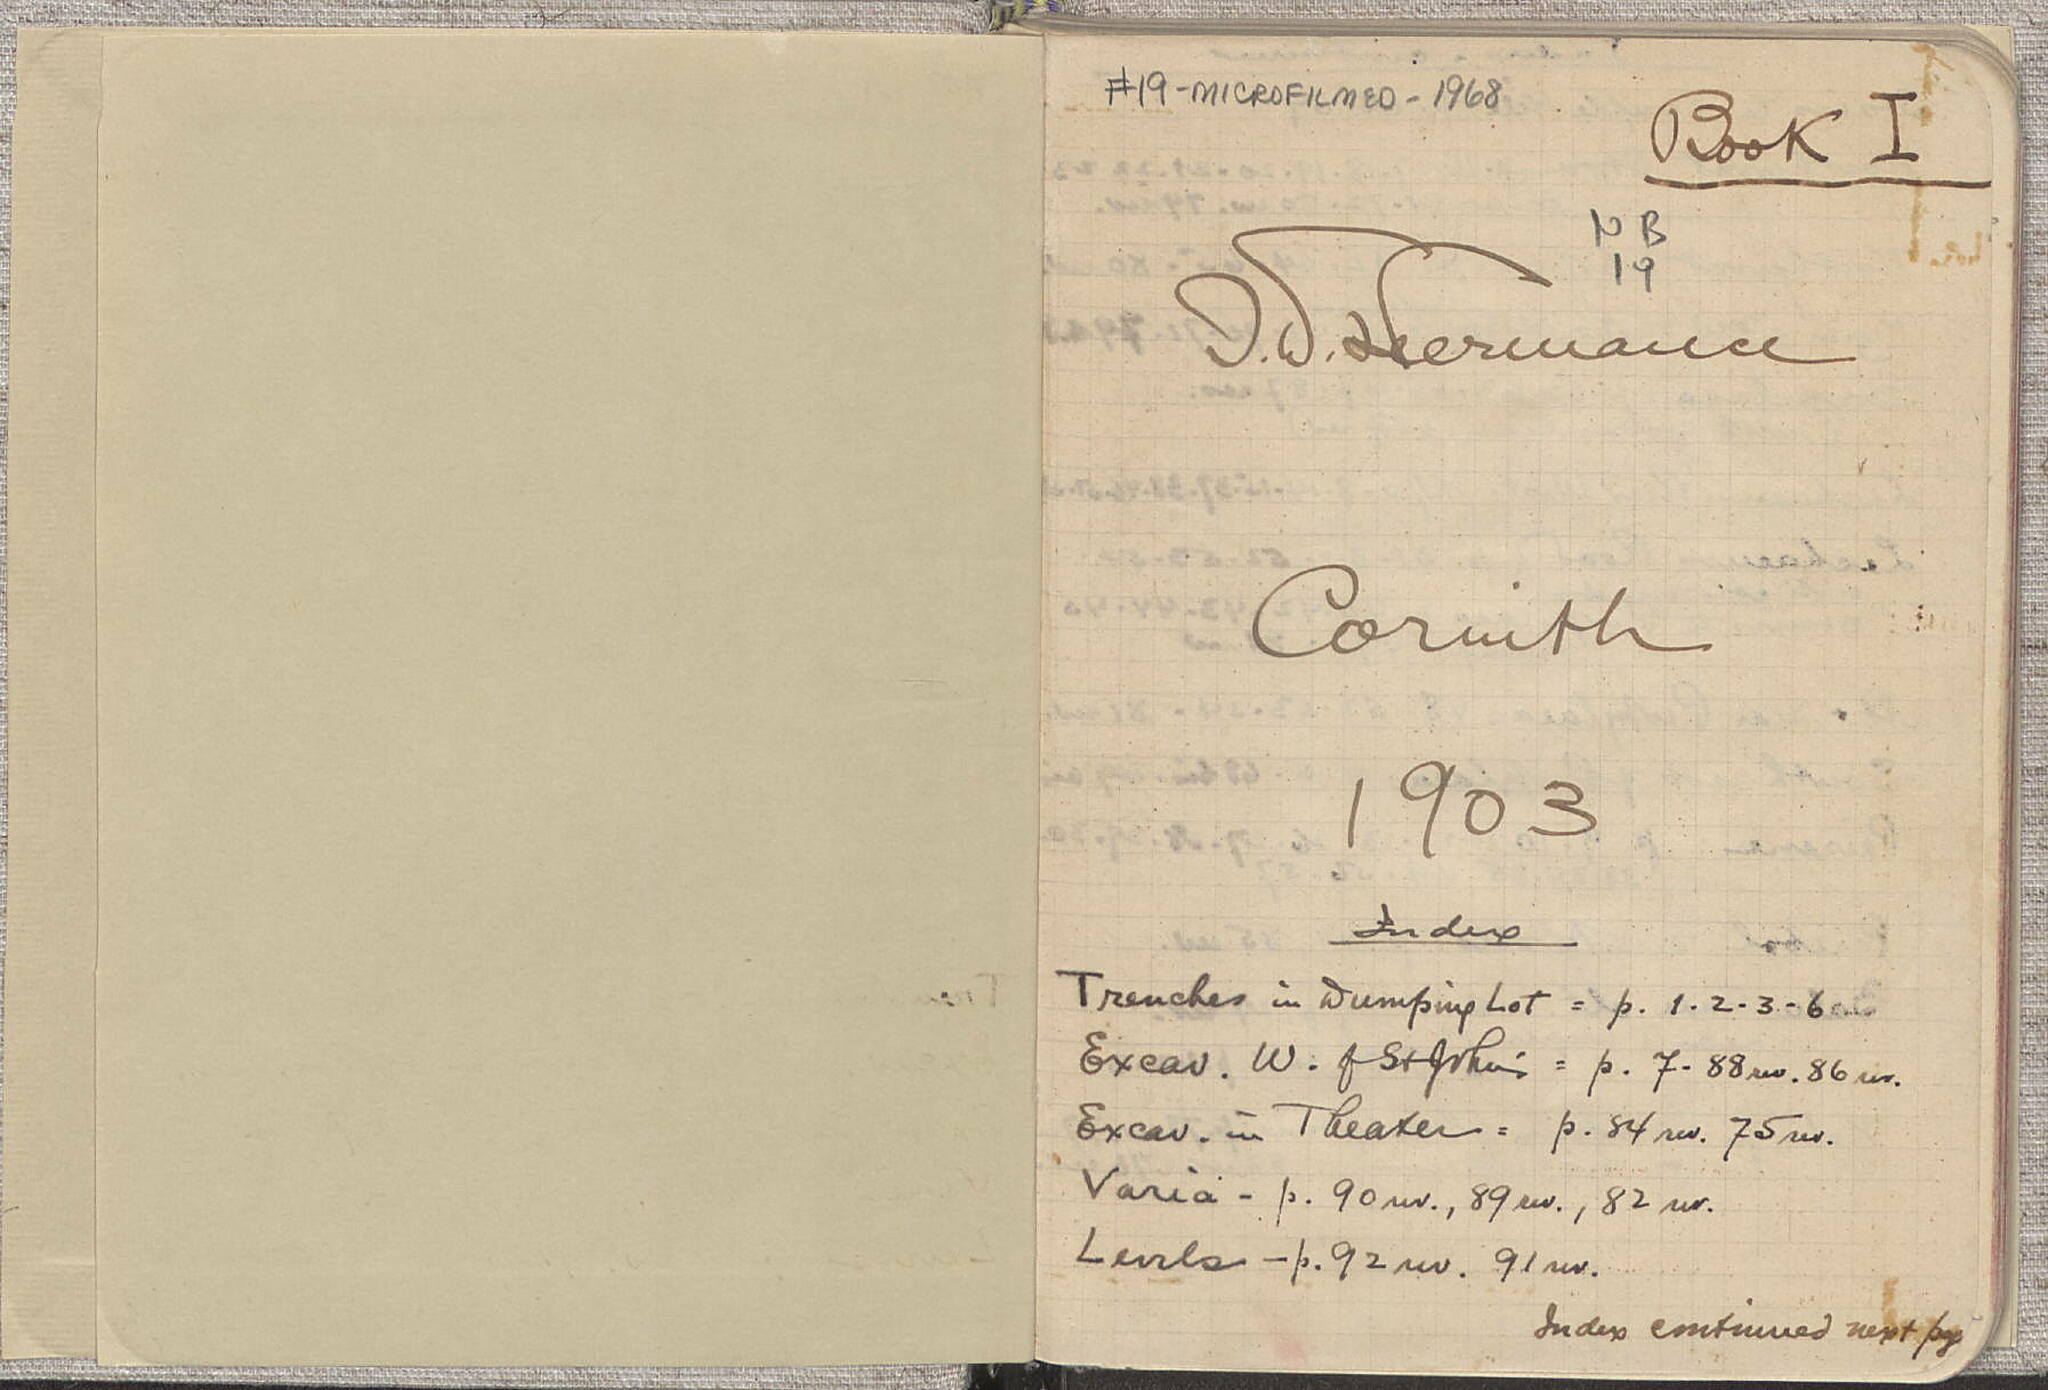 #19-MICROFILMED-1968
Book I
NB
19
Corinth
1903
Index
Trenches in Dumping Lot = p. 1.2-3-6
Excav. W. of St John's = p. 7-88 rev. 86 rev.
Excav. in Theater = p. 84 rev. 75 rev.
Varia - p. 90 rev., 89 rev., 82 rev.
Levels - p. 92 rev. 91 rev.
Index continued next pg